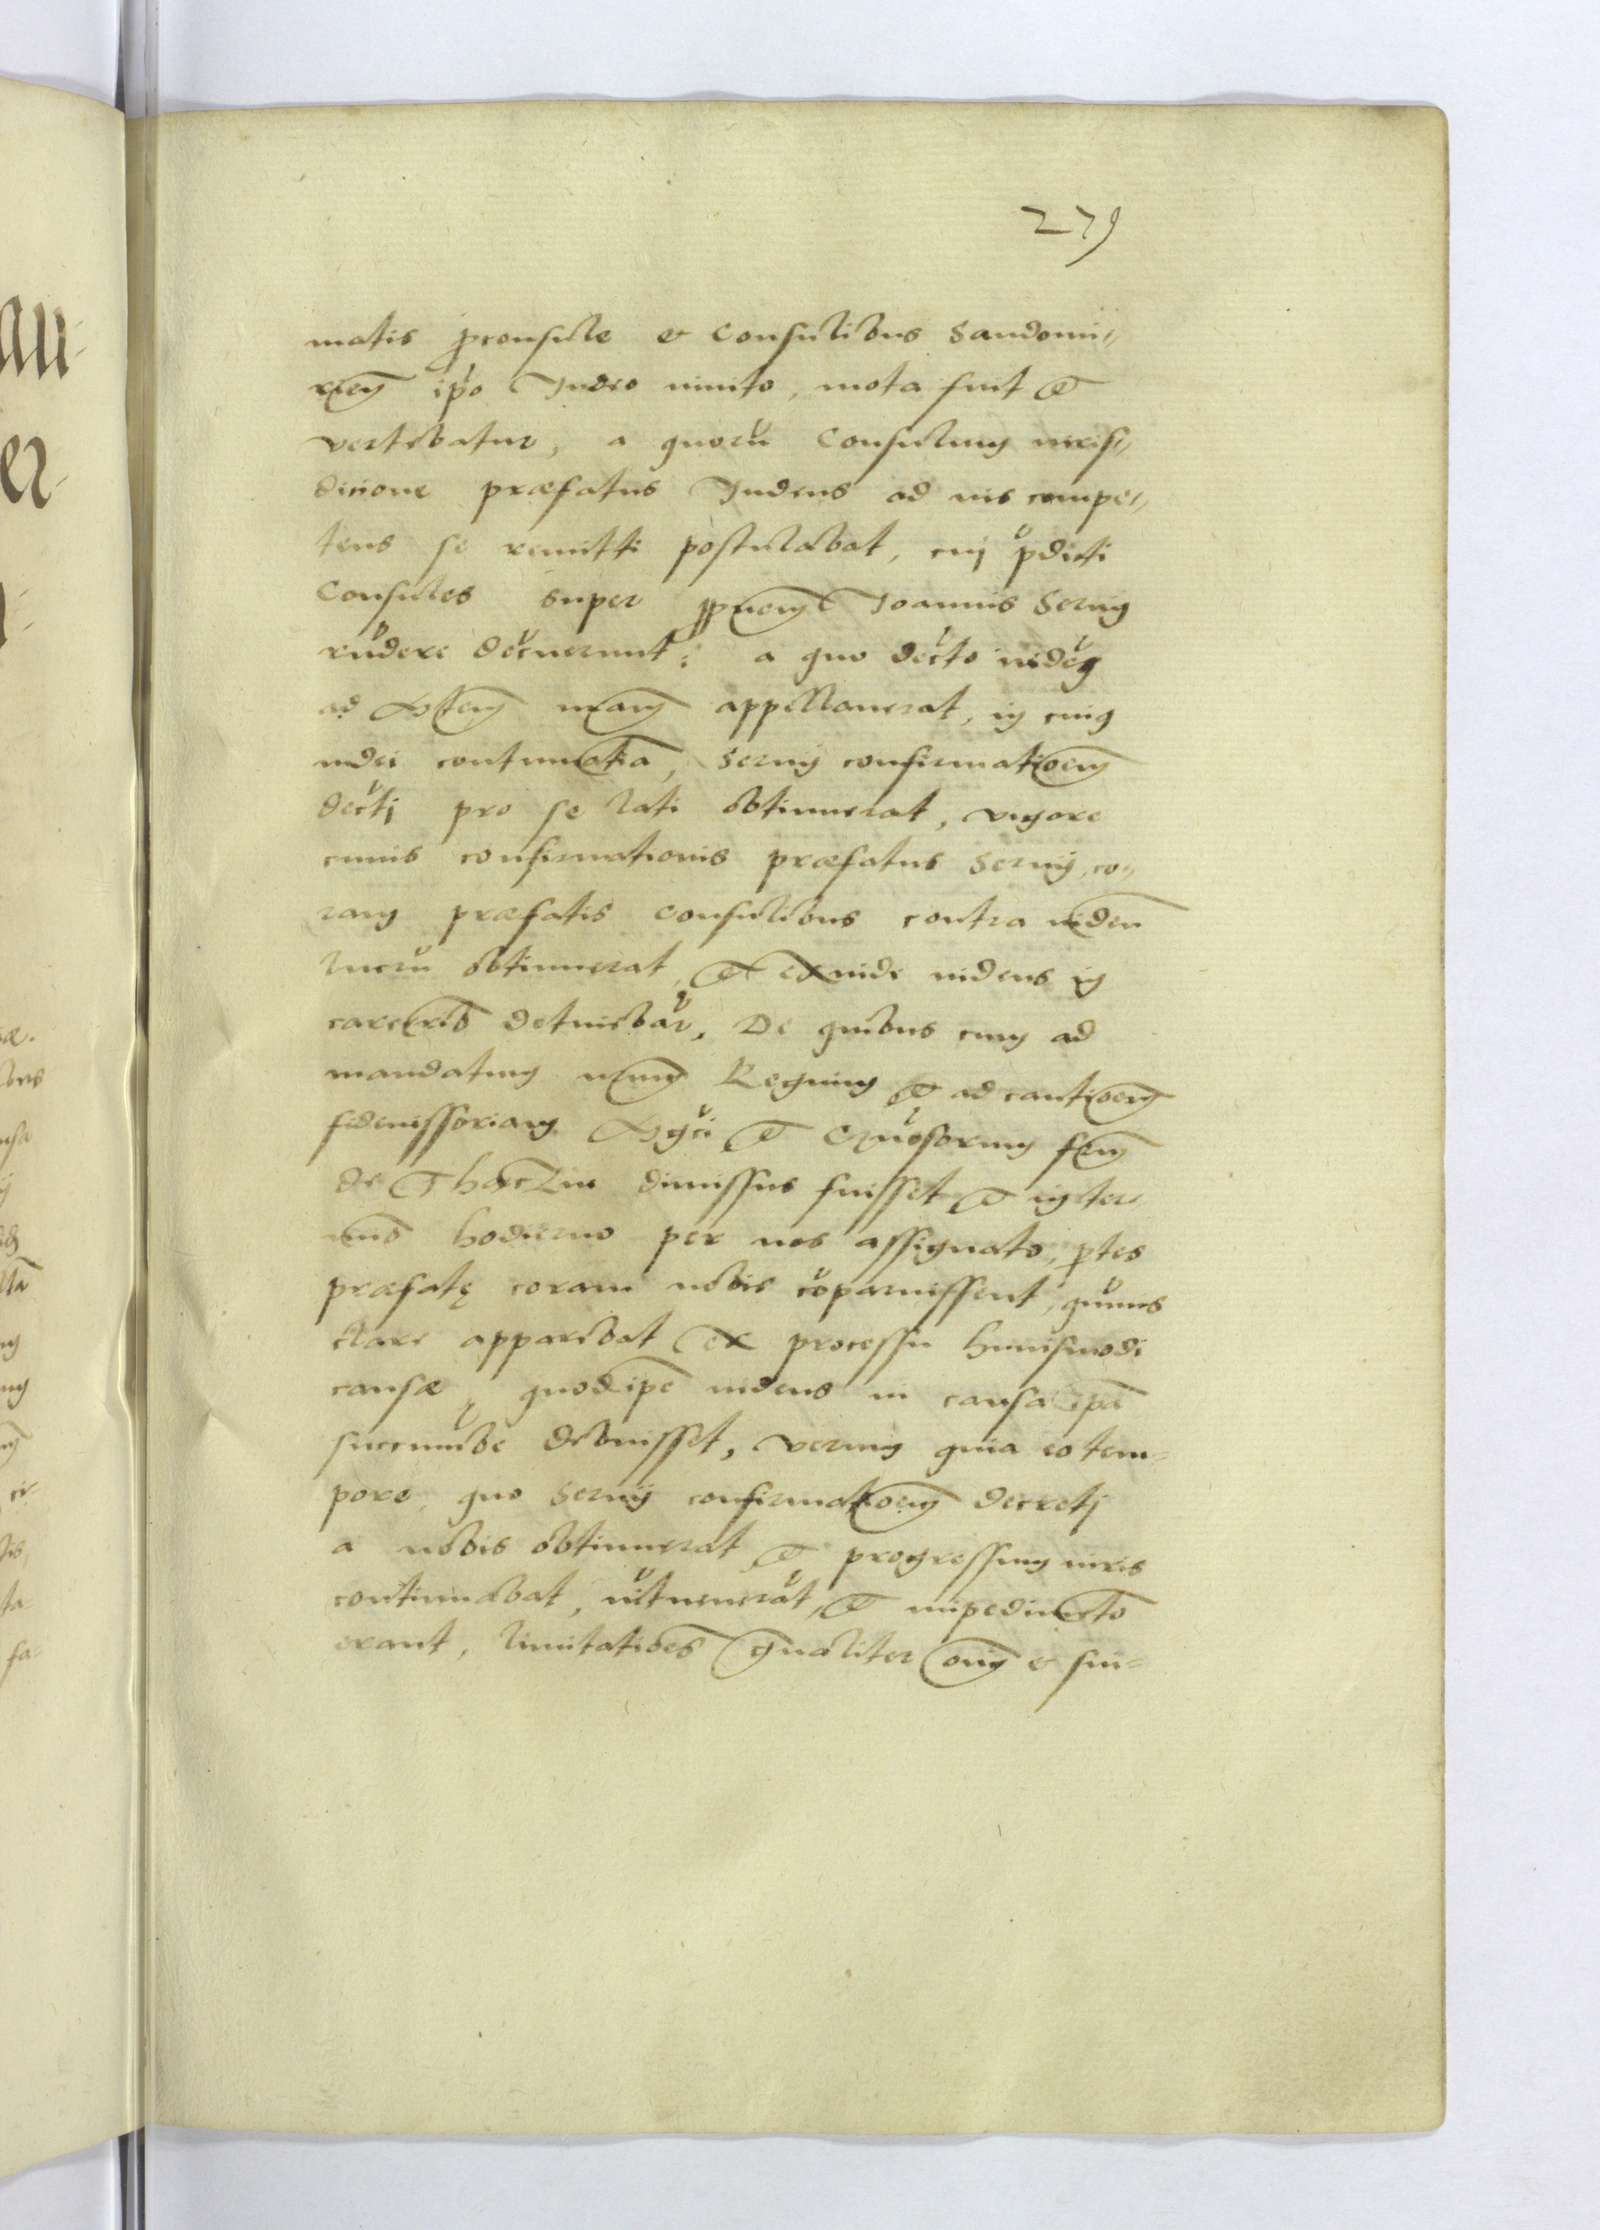 279
matis proconsule et Consulibus Sandomi-
rien ipo Iudeo inuito, mota fuit et
vertebatur, a quoru Consulum iuris-
dicione præfatus Iudeus ad ius compe-
tens se remitti postulabat, cuj pdicti
Consules super Ioannis Serny
rndere decuerunt: a quo decto iudeus
ad Mtem nram appellauerat, in cuius
iudei contumatia, Serny confirmationem
decti pro se lati obtinuerat, vigore
cuius confirmationis præfatus Serny co-
ram præfatis Consulibus contra iudeu
lucru obtinuerat et exinde iudeus in
carcerib detinebatr, De quibus cum ad
mandatum nrum Regium et ad cautionem
fideiussoriam Mgci et Gnosorum
de dimissus fuisset et in ter
mino hodierno per nos assignato, ptes
præfatę coram nobis coparuissent, quuis
clare apparebat ex processu huiusmodi
causæ, quod ipe iudeus in causa ipa
succumbe debuisset, verum quia eo tem-
pore, quo Serny confirmationem decretj
a nobis obtinuerat et progressum iuris
continuabat, interuenerat, et impedimeto
erant, limitatioes gnaliter oim et sin-